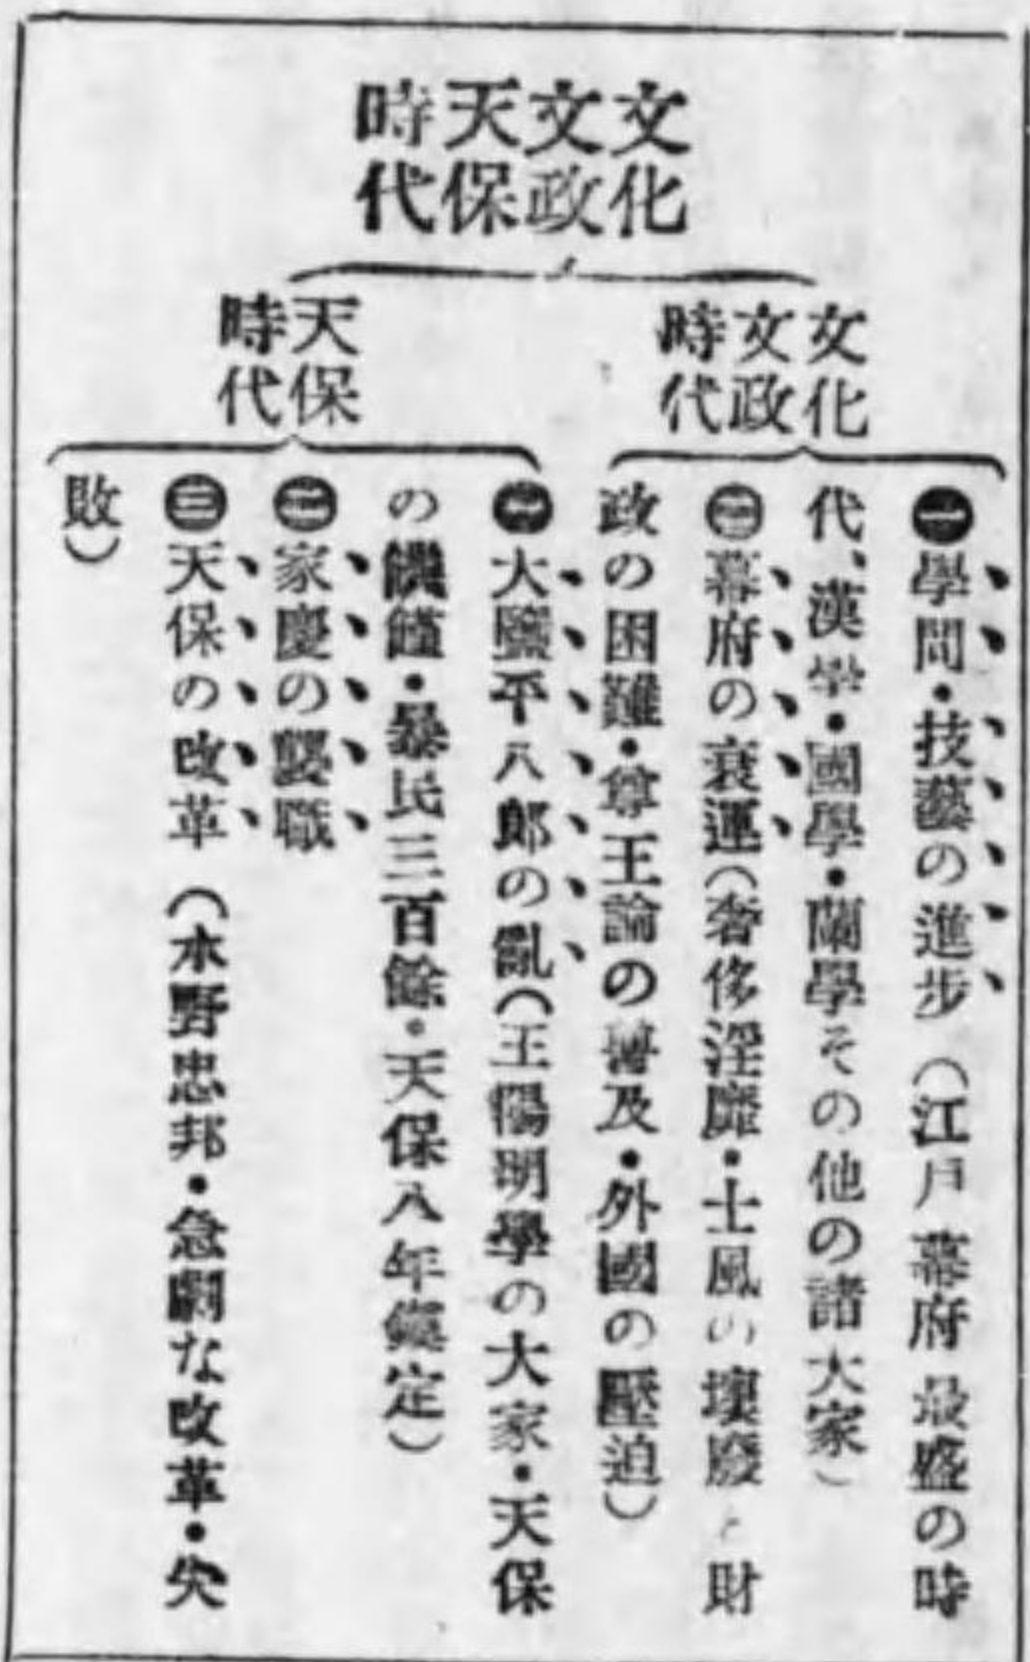 文化
文政
天保
時代
文化
文政
時代
❶學問・技藝の進步（江戶幕府最盛の時
代、漢學・國學・蘭學その他の諸大家）
㊁幕府の衰運（奢侈淫靡・士風の壞廢と財
政の困難・尊王論の普及・外國の壓迫）
天保
時代
❶大鹽平八郎の亂（王陽明學の大家・天保
の饑饉・暴民三百餘・天保八年鎭定）
㊁家慶の襲職
㊂天保の改革（水野忠邦・急劇な改革・失
敗）